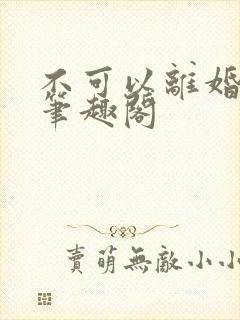 不可以離婚
筆趣閣
賣萌無敵小小